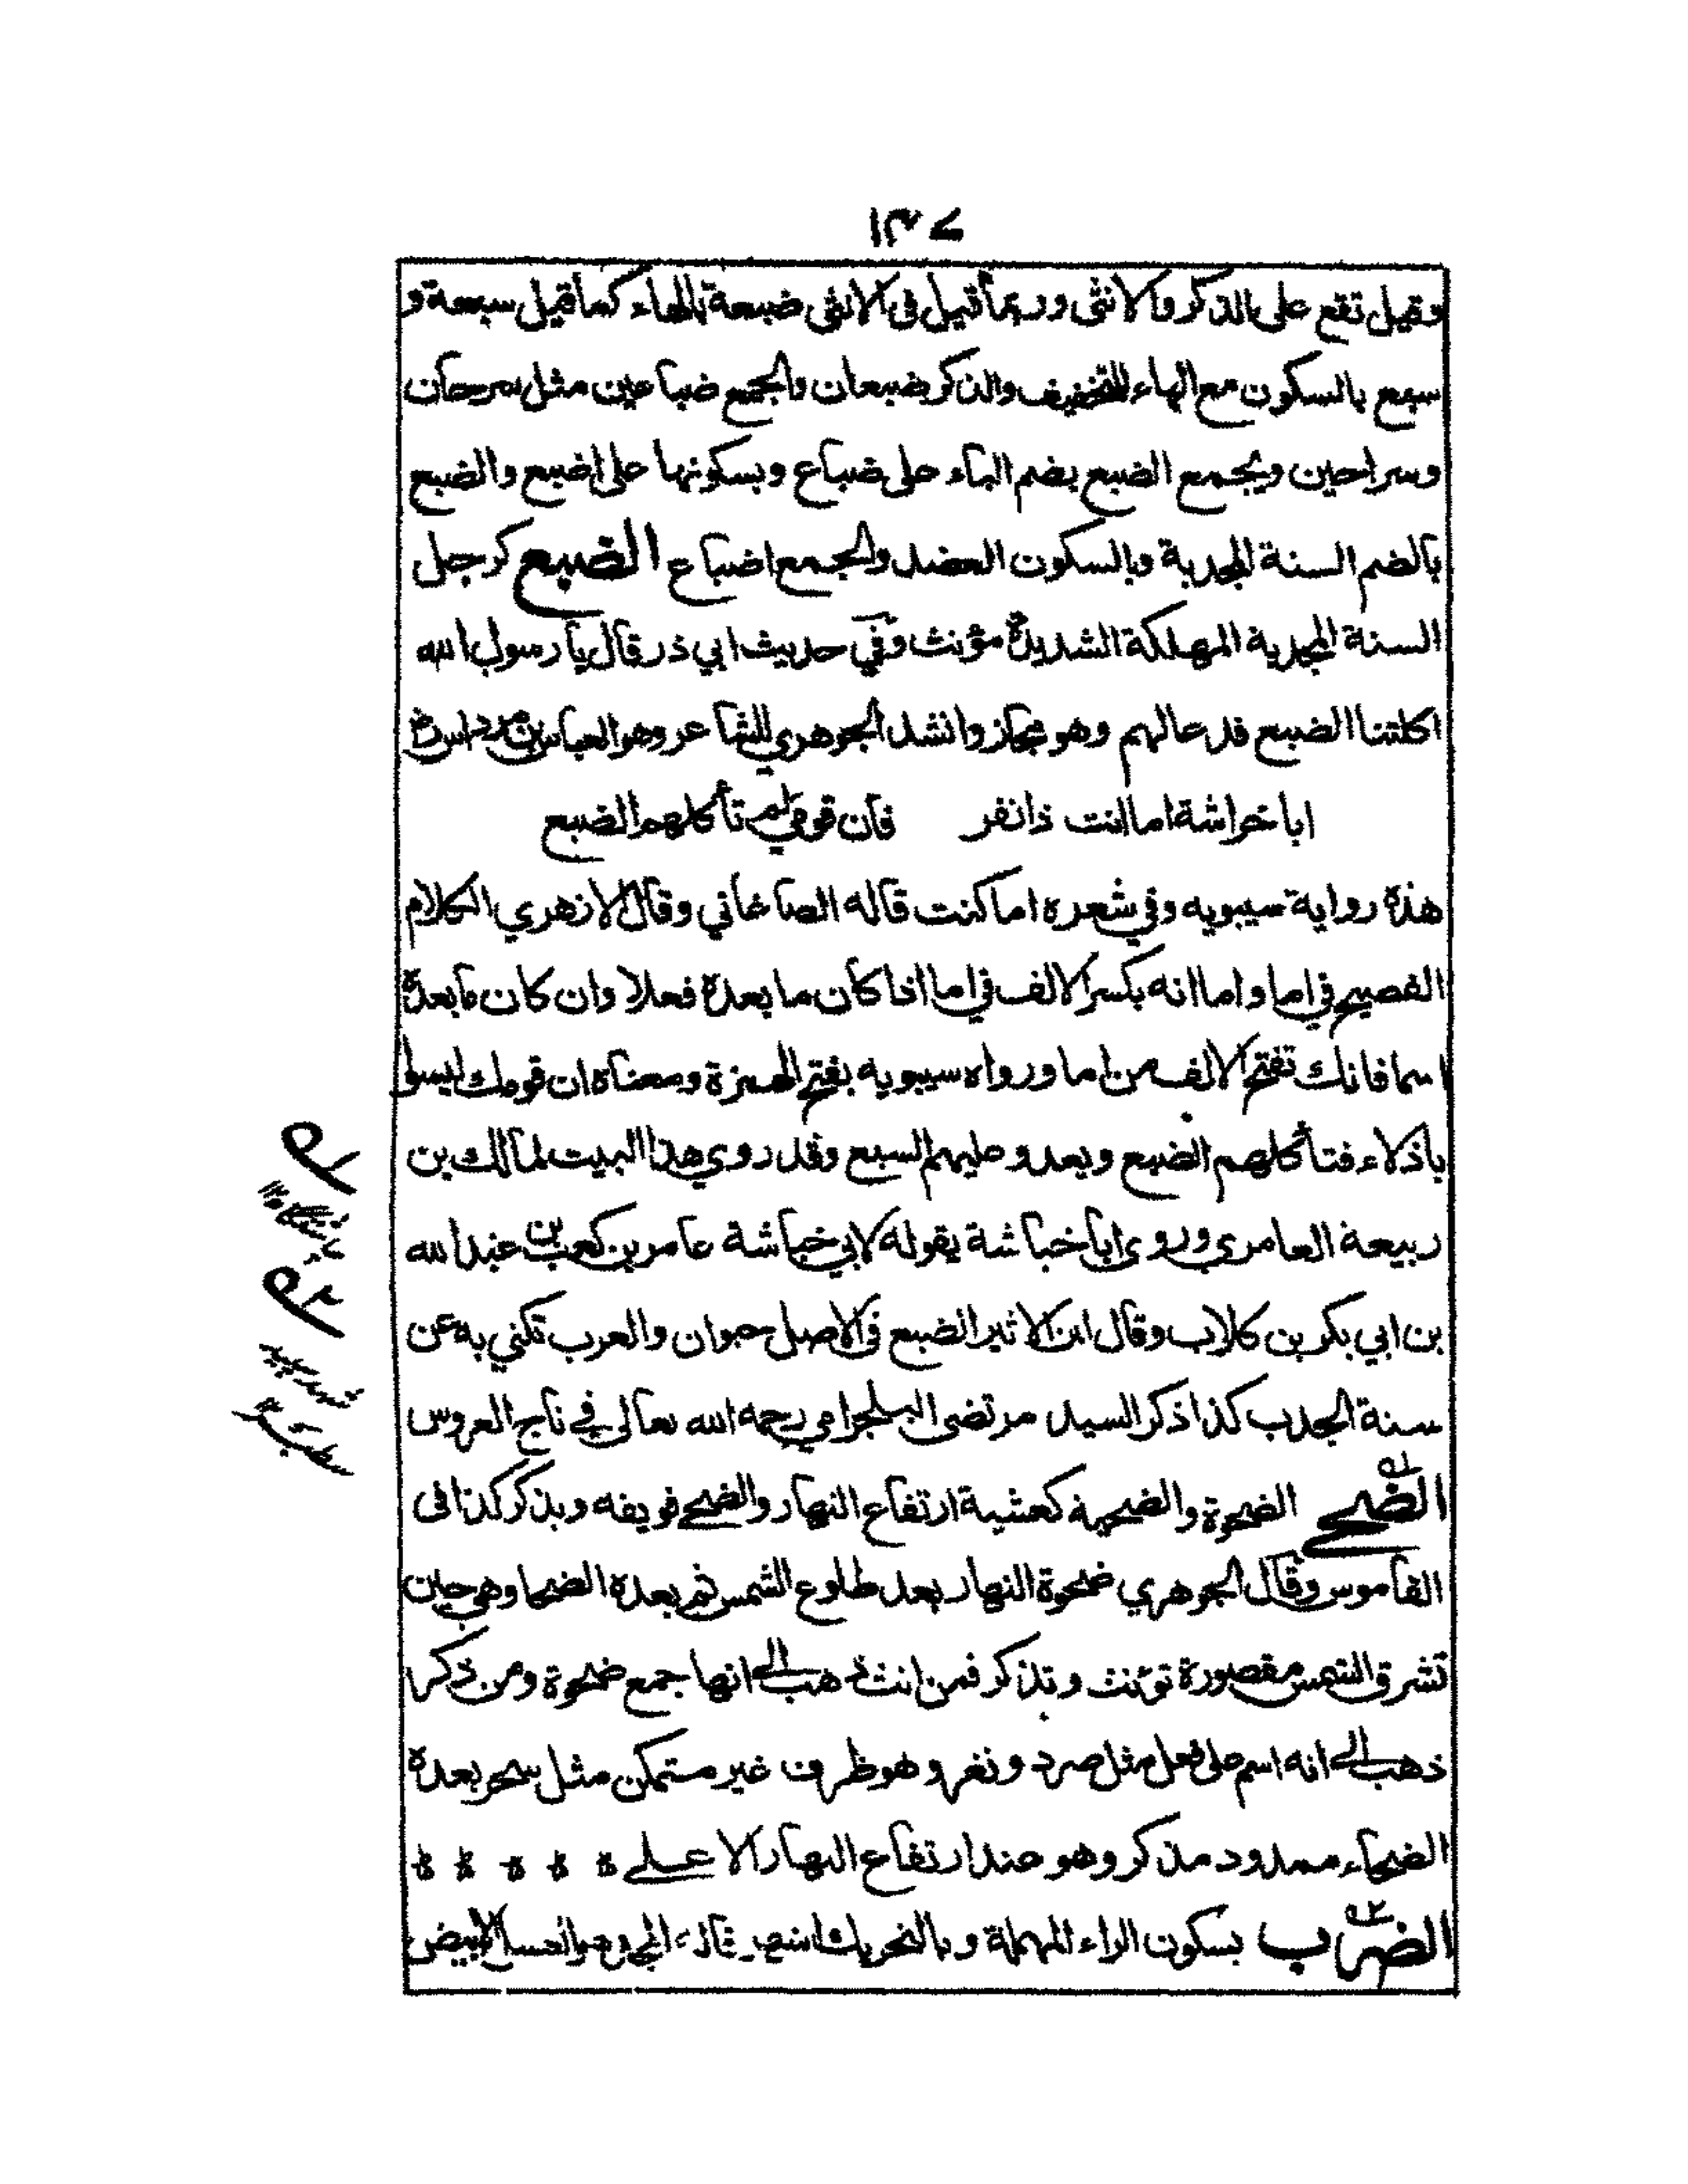 ١٣٧
وقيل تقع على الذكر والانثى وربما قيل فى الانثى ضبعة بالهاء كما قيل سبعة و
سبع بالسكون مع الهاء للتخفيف والذكر ضبعان والجمع ضباعين مثل سرحان
وسراحين ويجمع الضبع بضم الباء على ضباع وبسكونها على اضبع والضبع
بالضم السنة المجدبة وبالسكون العضد والجمع اضباع الضبع كرجل
السنة المجدبة المهلكة الشديدة مؤنث وفي حديث ابي ذر قال يا رسول الله
اكلتنا الضبع فدعا لهم وهو مجاز وانشد الجوهري للشاعر وهو العباس بن مرداس رض
ابا خراشة اما انت ذا نفر فان قومي لم تأكلهم الضبع
هذة رواية سيبويه وفي شعره اما كنت قاله الصاغاني وقال الازهري الكلام
الفصيح في اما واما انه بكسر الالف في اما اذا كان ما بعدة فعلا وان كان ما بعدة
اسما فانك تفتح الالف من اما ورواه سيبويه بفتح الهمزة ومعناه ان قومك ليسوا
باذلاء فتأكلهم الضبع ويعدو عليهم السبع وقد روي هذا البيت لمالك بن
ربيعة العامري وروى ابا خباشة يقوله لابي خباشة عامر بن كعب بن عبد الله
بن ابي بكر بن كلاب وقال ابن الاثير الضبع فى الاصل حيوان والعرب تكني به عن
سنة الجدب كذا ذكر السيد مرتضى البلجرامي رحمه الله تعالى في تاج العروس
الضحى الضحوة والضحية كعشية ارتفاع النهار والضحى فويقه ويذكر كذا فى
القاموس وقال الجوهري ضحوة النهار بعد طلوع الشمس ثم بعده الضحا وهي حين
تشرق الشمس مقصورة تؤنث وتذكر فمن انث ذهب الى انها جمع ضحوة ومن ذكر
ذهب الى انه اسم على فعل مثل صرد ونغر وهو ظرف غير متمكن مثل سحر بعدة
الضحاء ممدود مذكر وهو عند ارتفاع النهار الاعلے ۞ ۞ ۞ ۞ ۞
الضرب بسكون الراء المهملة وبالتحريك العسل الابيض